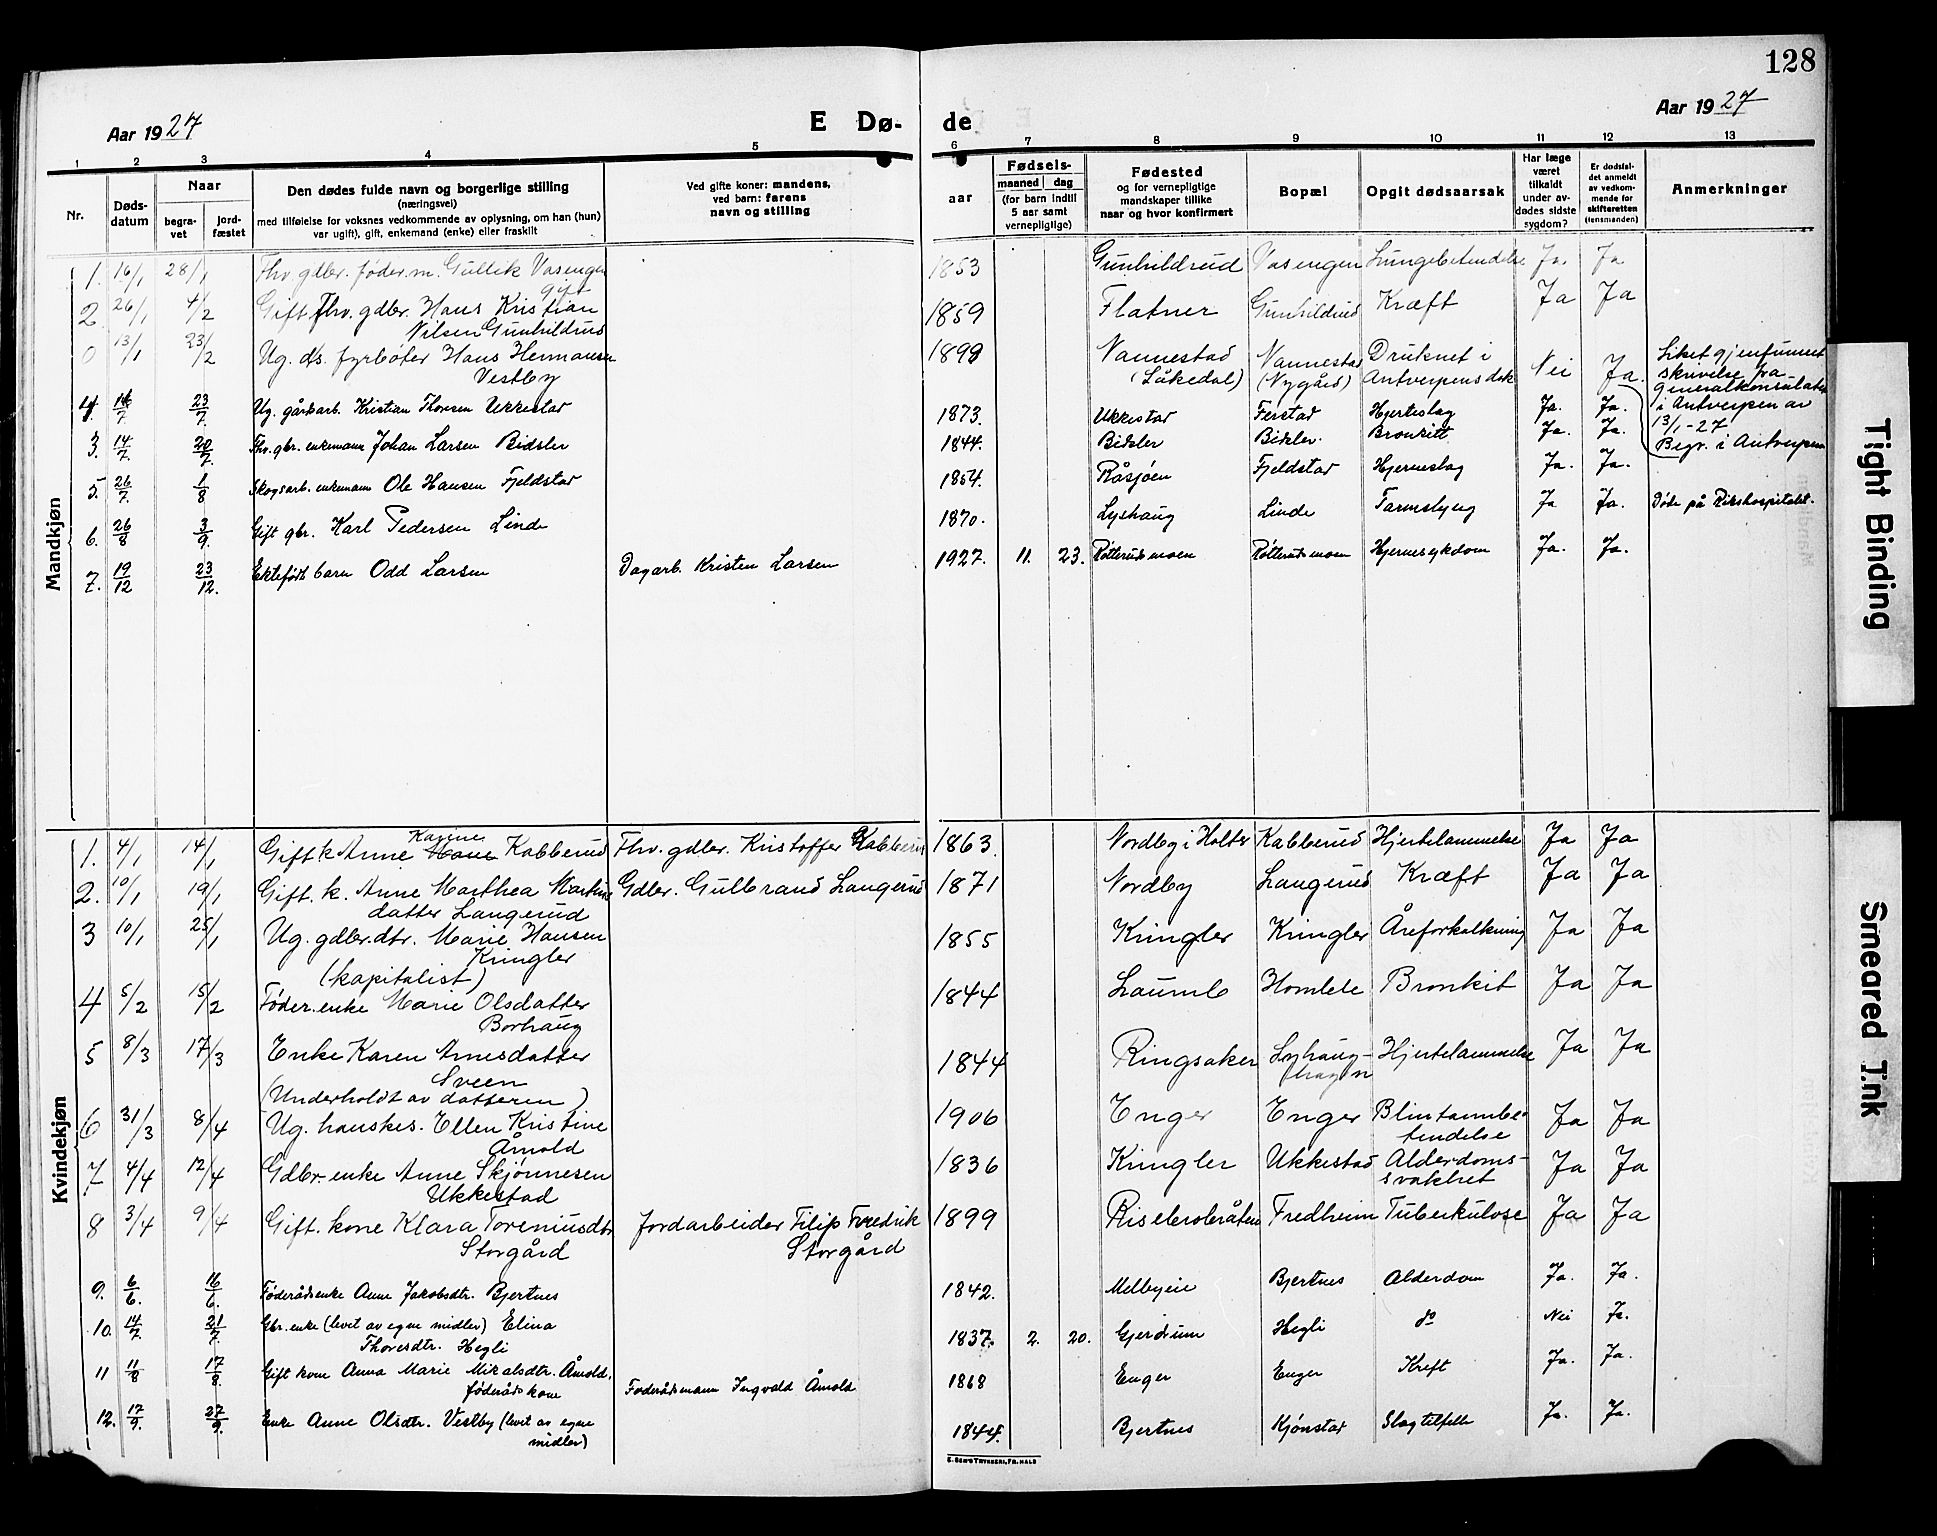 128
Aar 1927
E Dø-
de
Aar 1927
1 2 3 4 5 6 7 8 9 10 11 12 13
Nr.
Dødsdatum
Naar
begravet
jordfæstet
Den dødes fulde navn og borgerlige stilling
(næringsvei)
med tilføielse for voksnes vedkommende av oplysning, om han (hun)
var ugift), gift, enkemand (enke) eller fraskilt
Ved gifte koner: mandens,
ved barn: farens
navn og stilling
aar
Fødsels-
maaned dag
(for barn indtil
5 aar samt
vernepligtige)
Fødested
og for vernepligtige
mandskaper tillike
naar og hvor konfirmert
Bopæl
Opgit dødsaarsak
Har læge
været
tilkaldt
under avdødes sidste
sygdom?
Er dødsfaldet anmeldt
av vedkommende for
skifteretten
(lensmanden)
Anmerkninger
Mandkjøn
1. 16/1 28/1 Fhv. gdbr. føder.m. Gullik Vasengen 1853 Gunhildrud Vasengen Lungebetendelse Ja. Ja
2 26/1 4/2 Gift Fhv. gdbr. Hans Kristian
Nilsen Gunhildrud 1859 Flatner Gunhildrud Kræft Ja Ja
0 13/1 23/2 Ug. d/s. fyrbøter Hans Hermansen
Vestby 1899 Nannestad
(Låkedal) Nannestad
(Nygård) Druknet i
Antverpens dok Nei Ja. Liket gjenfunnet
skrivelse fra
generalkonsulatet
i Antverpen av
13/1-27
Begr. i Antverpen
4. 16/7 23/7 Ug. gårdsarb. Kristian Thoresen Ukkestad 1873. Ukkestad Ferstad Hjerteslag Ja. Ja.
3. 14/7 20/7 Fhv. gbr. enkemann Johan Larsen Bidsler 1844. Bidsler Bidsler. Bronkitt Ja. Ja.
5. 26/7. 1/8 Skogsarb. enkemann Ole Hansen Fjeldstad 1854. Råsjøen Fjeldstad Hjerneslag Ja. Ja.
6. 26/8 3/9. Gift gbr. Karl Pedersen Linde 1870. Lyshaug Linde Tarmslyng Ja Ja. Døde på Rikshospitalet.
7. 19/12 23/12. Ektefødt barn Odd Larsen Dagarb. Kristen Larsen 1927. 11. 23. Røtterudsmoen Røtterudsmoen Hjernesykdom Ja. Ja.
Kvindekjøn
1. 4/1 14/1 Gift k. Anne Karine Kabberud Fhv. gdbr. Kristoffer Kabberud 1863. Nordby i Holter Kabberud Hjertelammelse Ja Ja
2. 10/1 19/1 Gift. k. Anne Marthea Martins
datter Langerud Gdbr. Gulbrand Langerud 1871 Nordby Langerud Kræft Ja Ja
3 10/1 25/1 Ug. gdbr.dtr. Marie Hansen
Kringler
(kapitalist) 1855 Kringler Kringler Åreforkalkning Ja Ja
4 5/2 15/2 Føder.enke Marie Olsdatter
Borhaug 1844 Laumb Homlete Bronkit Ja Ja
5 8/3 17/3 Enke Karen Arnesdatter
Sveen
(Underholdt av datteren) 1844 Ringsaker Lyhaug-
hagen Hjertelammelse Ja Ja
6 31/3 8/4 Ug. hauskes. Ellen Kristine
Årnold 1906 Enger Enger Blintarmbe-
tendelse Ja Ja
7 4/4 12/4 Gdbr-enke Anne Skjønnesen
Ukkestad 1836 Kringler Ukkestad Alderdoms-
svakhet Ja Ja
8 3/4 9/4 Gift. kone Klara Toreniusdtr
Storgård Jordarbeider Filip Fredrik
Storgård 1899 Riseberobråten Fredheim Tuberkulose Ja Ja
9. 6/6. 16/6. Føderådsenke Anne Jakobsdtr. Bjertnes 1842. Melbyeie Bjertnes Alderdom Ja. Ja.
10. 14/7. 21/7. Gbr. enke (levet av egne midler) Elina
Thoresdtr. Hegli 1837. 2. 20. Gjerdrum Hegli do Nei Ja.
11 11/8 17/8. Gift kone Anna Marie Mikalsdtr. Årnold,
føderådskone Føderådsmann Ingvald Årnold 1868 Enger Enger Kreft Ja. Ja.
12. 17/9. 27/9. Enke Anne Olsdtr. Vestby (levet av egne
midler) 1844. Bjertnes Kjønstad Slagtilfelle Ja. Ja.
Tight Binding
Smeared Ink